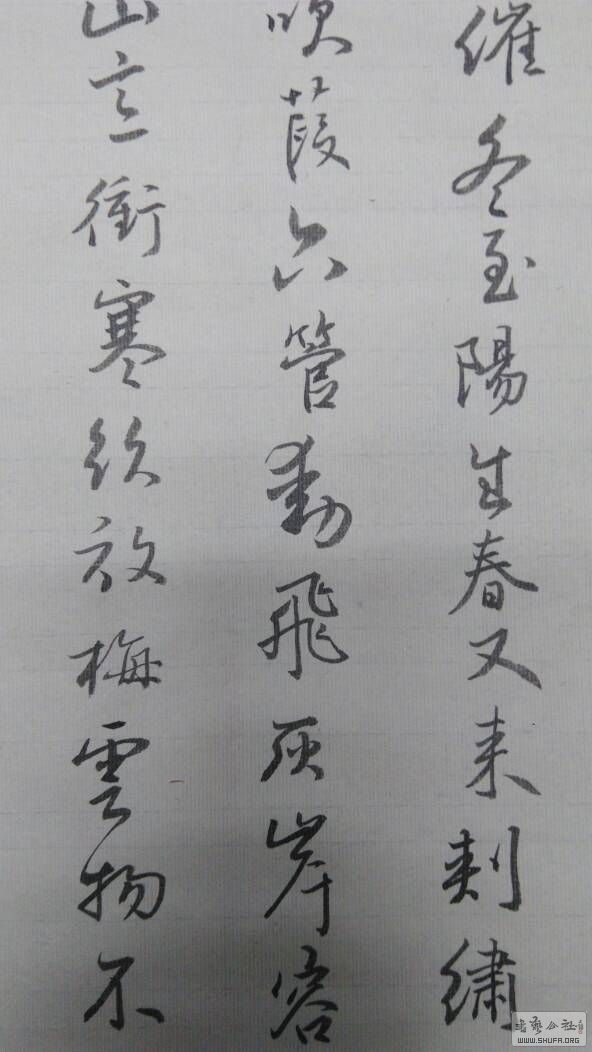 催冬至陽生春又来刺繡
吹葭六管動飛灰岸容
山意衝寒欲放梅雲物不
书艺公社
WWW.SHUFA.ORG